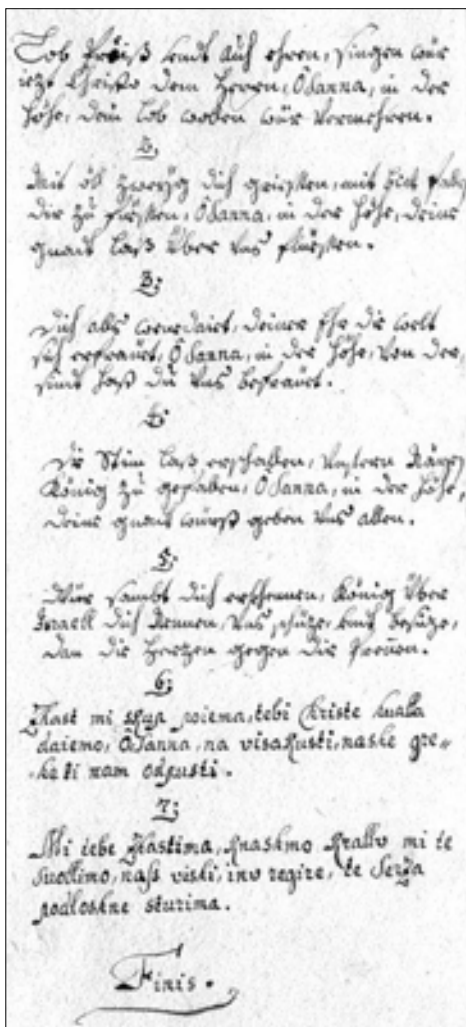 Lob Preiß undt Auch ehren, singen wür
iezt Christo dem Herren, OSanna, in der
Höhe, dein lob wollen wür vermehren.
2.
Mit öl zweÿg dich griessen, mit
dir zu füessen, OSanna, in der Höhe, deine
gnadt laß über vns fliessen.
3;
Dich alle dir welt
sich erfraüet, OSanna, in der Höhe, von der
sindt hast du vns befraüet.
4;
Die Stim laß erschallen, vnsern
König zu gefallen, OSanna, in der Höhe,
deine gnadt würst geben vns allen.
5;
Wür sambt dich erkhennen, König über
Israell dich Nennen, vns schüze, vnd
dan die Hertzen gegen dir
6;
Zhast mi skup poiema, tebi Christe hualla
daiemo, OSanna, na visakusti, nashe gre„
he ti nam odpusti.
7;
Mi tebe Zhastima, knashmo krallu mi te
suollimo, naß viski, inu regire, te Serza
podloshne sturima.
Finis.